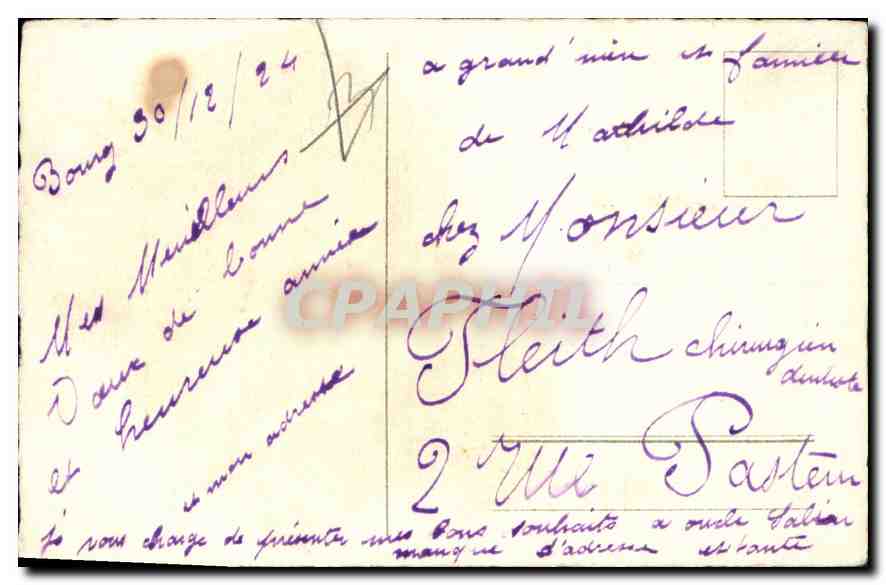 Bourg 30/12/24
Mes Meilleurs
Vœux de bonne
et heureuse année
et mon adresse
je vous charge de présenter mes bons souhaits a oncle
manque d'adresse et tante
a grand' et
de Mathilde
chez Monsieur
Fleith chirurgien
dentiste
2 rue Pasteur
CPAPHIL